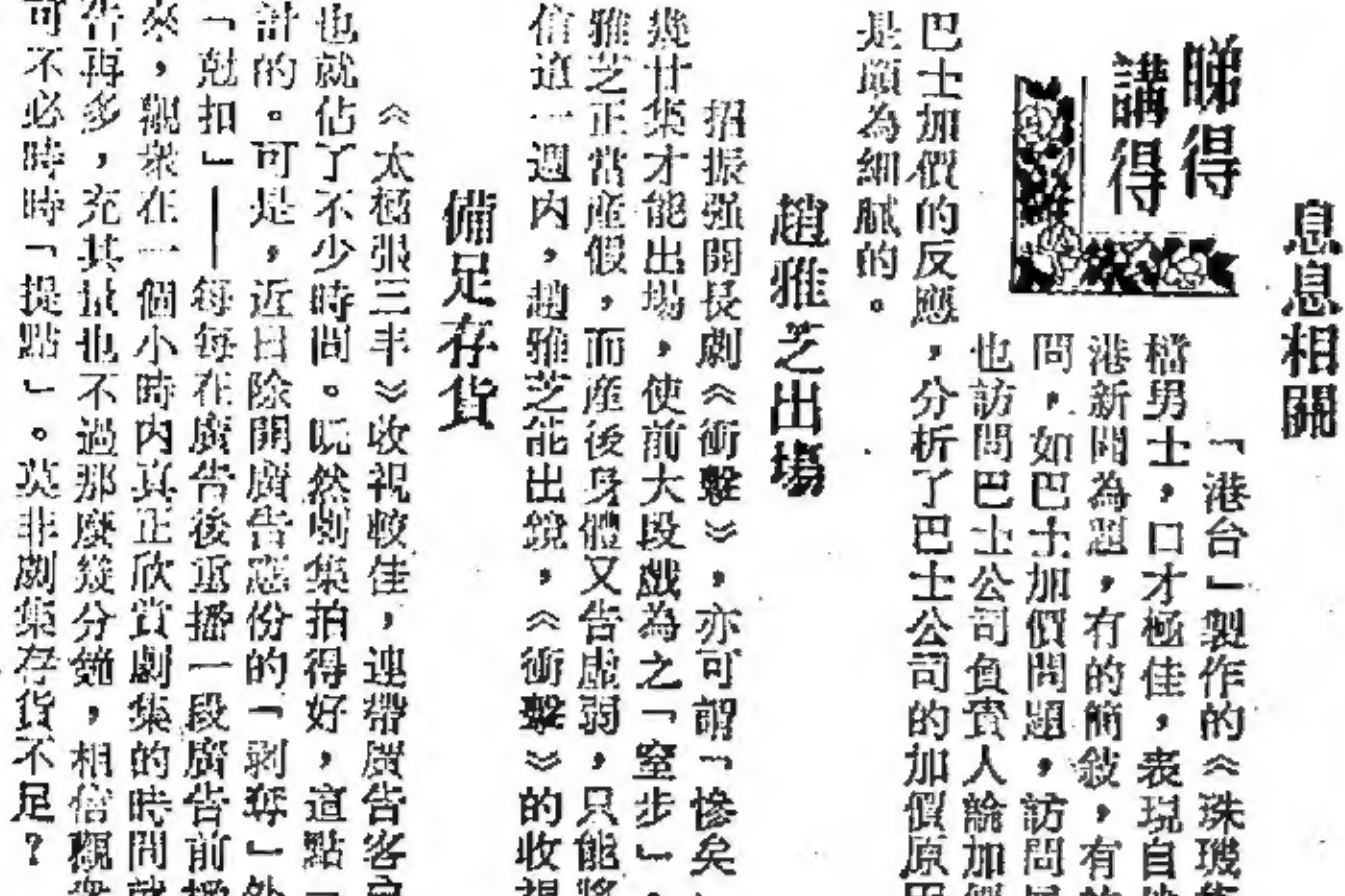 息息相關
睇得
講得
「港台」製作的《珠璣
檔男士，口才極佳，表現自
港新聞為題，有的簡敍，有
問，如巴士加價問題，訪問
也訪問巴士公司負責人論加價
巴士加價的反應，分析了巴士公司的加價原因
是頗為細膩的。
趙雅芝出場
招振強開長劇《衝擊》，亦可謂「慘矣
幾廿集才能出場，使前大段戲為之「窒步」，
雅芝正當產假，而產後身體又告虛弱，只能將
信這一週内，趙雅芝能出鏡，《衝擊》的收視
備足存貨
《太極張三丰》收視較佳，連帶廣告客戶
也就佔了不少時間。既然劇集拍得好，這點
計的。可是，近日除開廣告應份的「剥奪」外
「尅扣」——每每在廣告後重播一段廣告前播
來，觀衆在一個小時内真正欣賞劇集的時間就
告再多，充其量也不過那麼幾分鐘，相信觀衆
可不必時時「提點」。莫非劇集存貨不足？